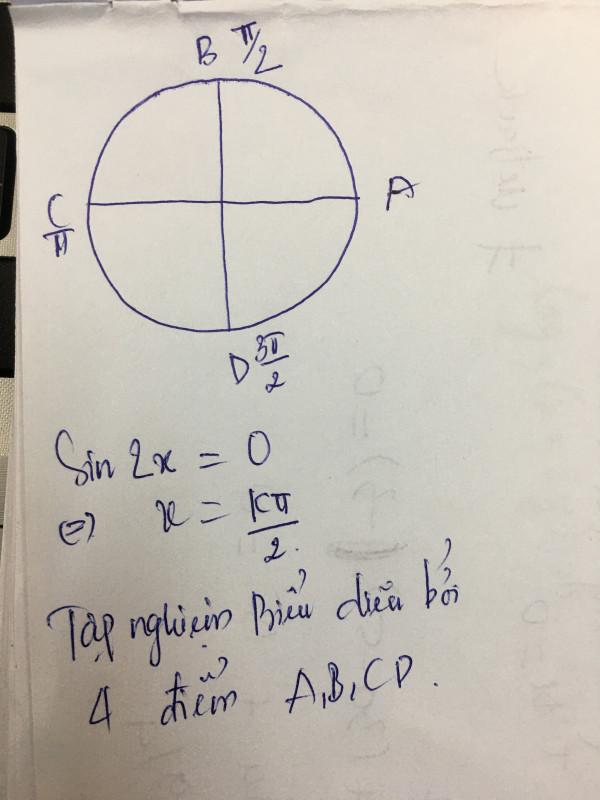 B π/2
A
C
π
D 3π/2
Sin 2x = 0
⇔ x = kπ/2.
Tập nghiệm Biểu diễn bởi
4 điểm A, B, C D.